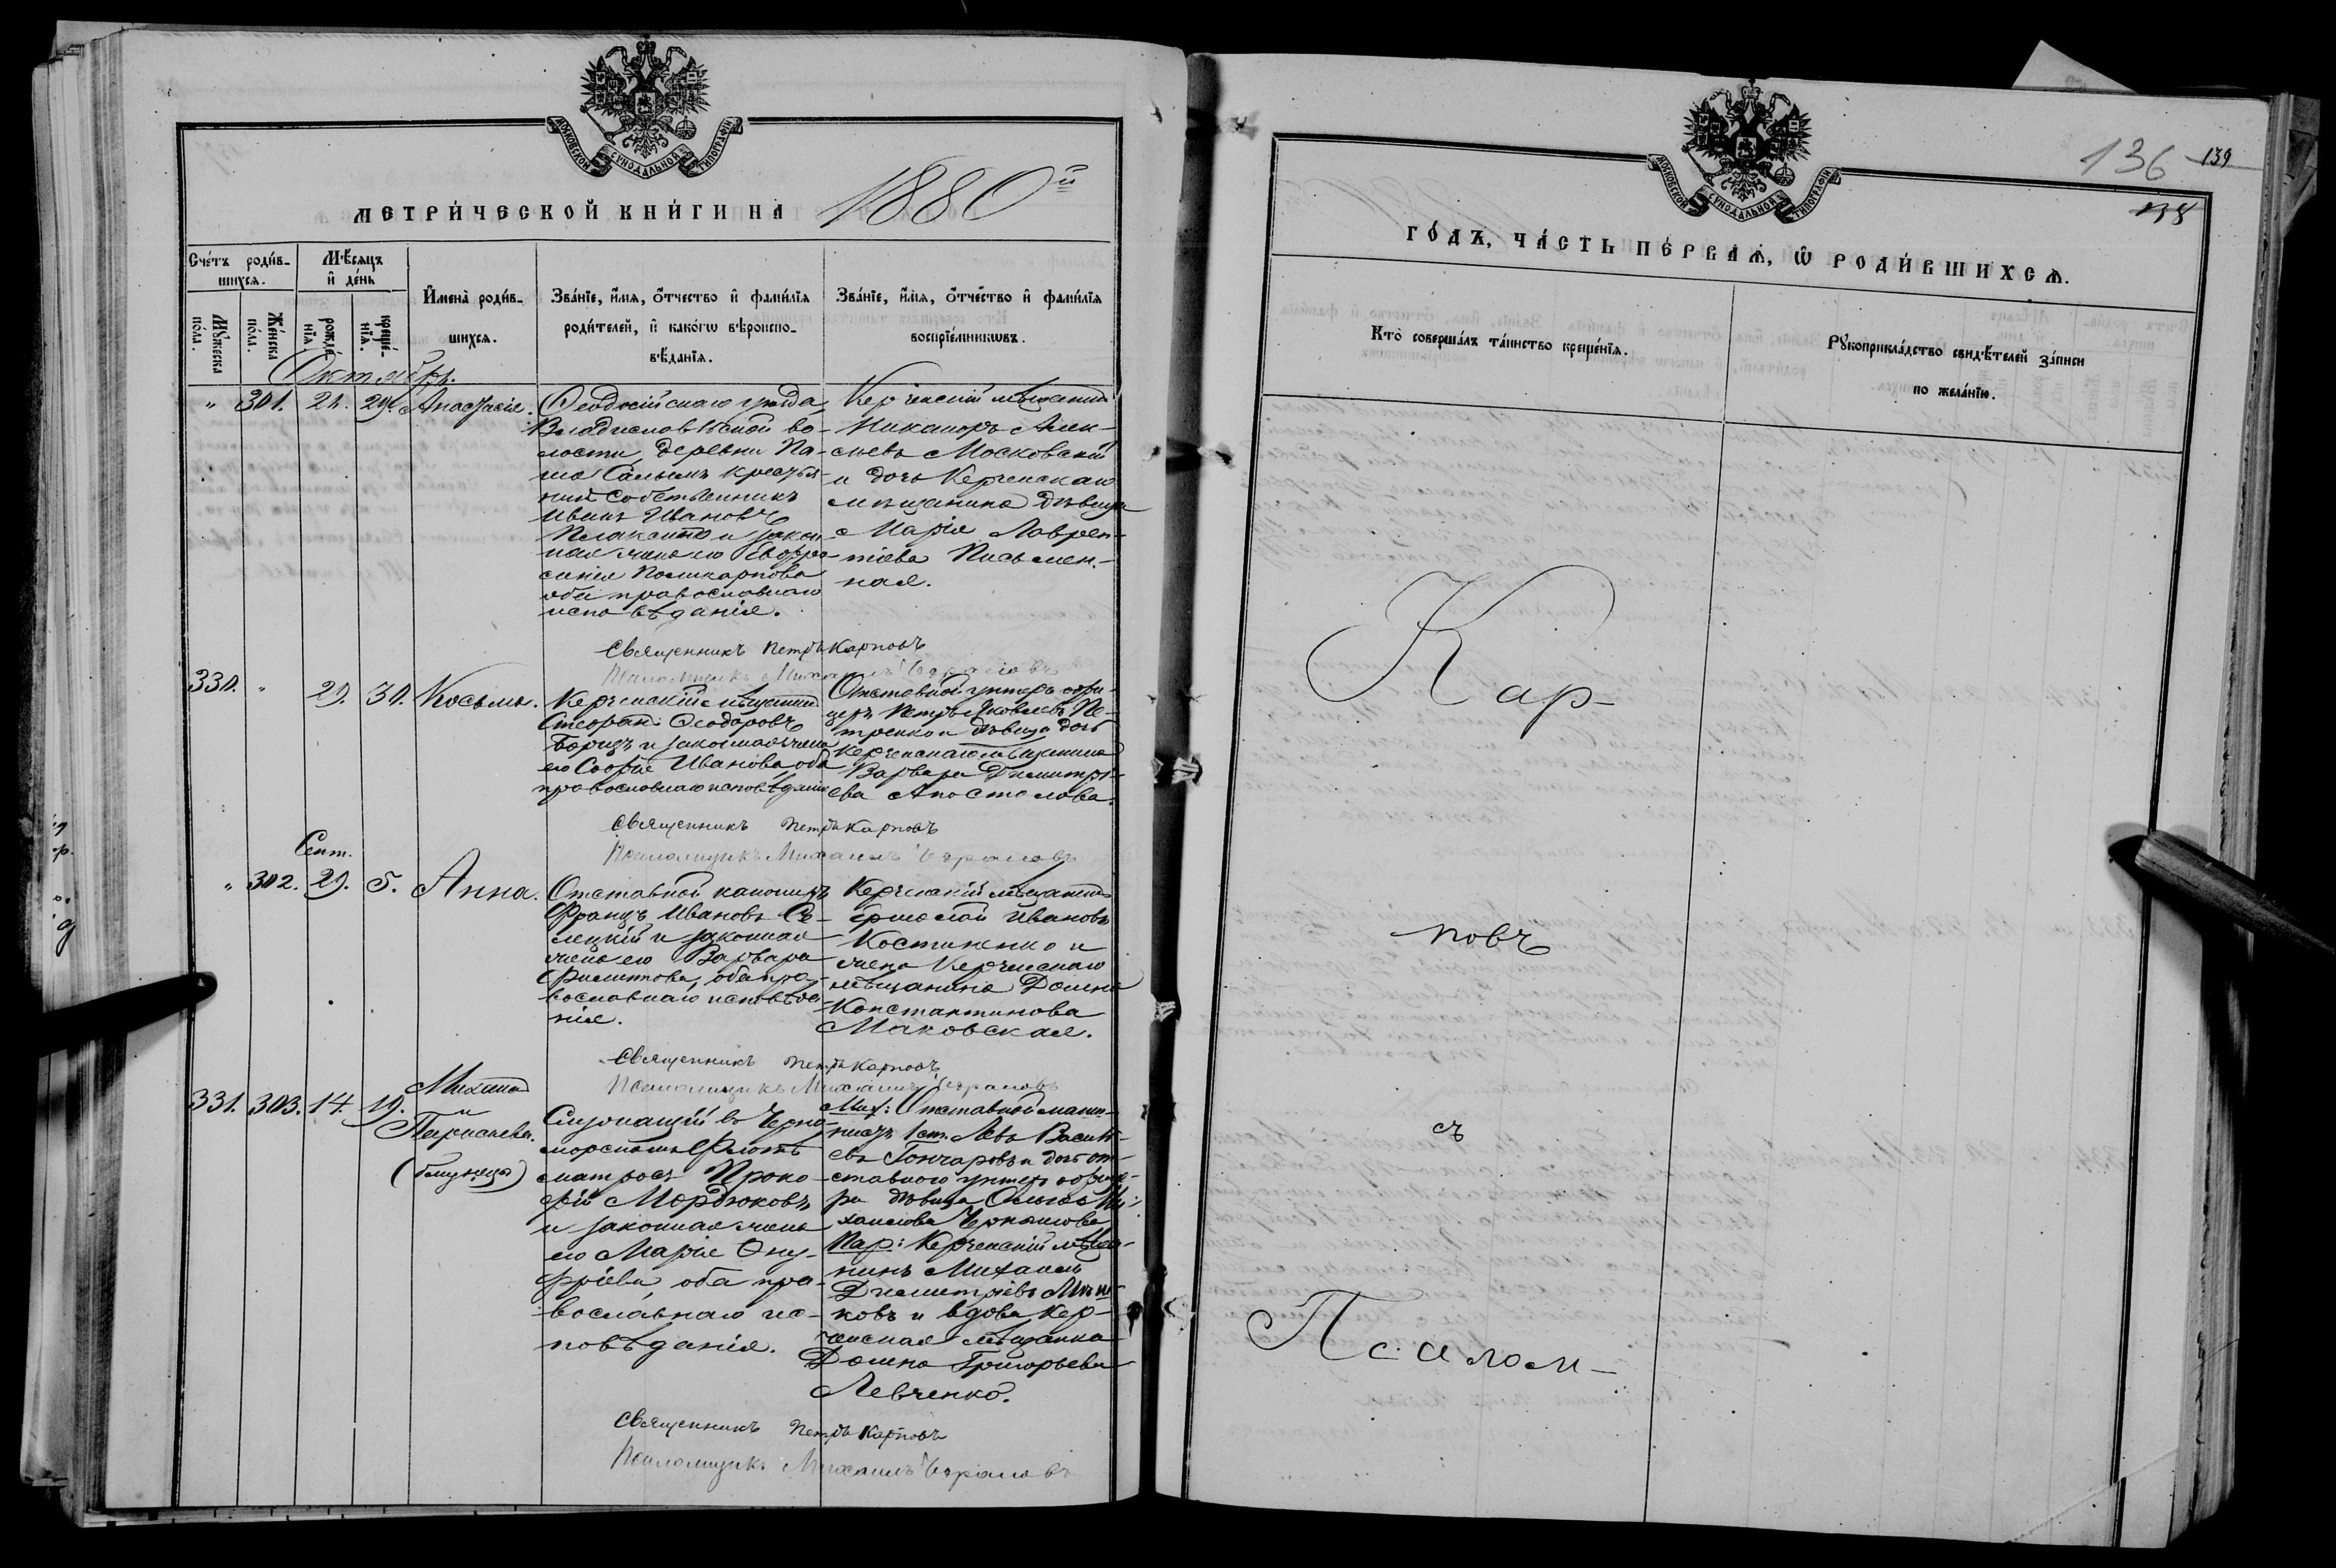 МОСКОВСКОЙ СУНОДАЛЬНОЙ ТИПОГРАФІИ
МЕТРИ́ЧЕСКОЙ КНИ́ГИ НА 1880й
Сче́тъ роди́в-
шихся.
Мѣ́сяцъ
и҆ де́нь
Мꙋ́жеска
по́ла.
Же́нска
по́ла.
рожде́-
нїя.
креще́-
нїя.
И҆мена̀ роди́в-
шихся.
Зва́нїе, и҆́мя, ѻ҆́тчество и҆ фами́лїя
роди́телей, и҆ како́гѡ вѣроиспо-
вѣ́данїя.
Зва́нїе, и҆́мя, ѻ҆́тчество и҆ фами́лїя
воспрїе́мникѡвъ.
Октябрь.
" 301. 21. 29. Анастасія.
Ѳеодосійскаго уѣзда,
Владиславовской во-
лости, деревни Па-
ша Салынъ крестья-
нинъ собственникъ
Иванъ Ивановъ
и закон-
ная жена его Евфро-
синія Поликарпова
оба православнаго
исповѣданія.
Керченскій мѣщанинъ
Никаноръ Алек-
сѣевъ Московскій
и дочь Керченскаго
мѣщанина дѣвица
Марія Лаврен-
тіева Письмен-
ная.
Священникъ Петръ Карповъ
Псаломщикъ Михаилъ
330. " 29. 30. Косьма.
Керченскій мѣщанинъ
Стефанъ Ѳеодоровъ
Борицъ и законная жена
его Софія Иванова, оба
православнаго исповѣданія
Отставной унтеръ офи-
церъ Петръ Яковлевъ Пе-
тренко и дѣвица дочь
Керченскаго мѣщанина
Варвара Димитрі-
ева Апостолова.
Священникъ Петръ Карповъ
Псаломщикъ Михаилъ
Сент.
" 302. 29. 5. Анна.
Отставной канониръ
Францъ Ивановъ Сѣ-
лецкій и законная
жена его Варвара
Филиппова, оба пра-
вославнаго исповѣда-
нія.
Керченскій мѣщанинъ
Ермолай Ивановъ
Костиненко и
жена Керченскаго
мѣщанина Домна
Константинова
Маковская.
Священникъ Петръ Карповъ
Псаломщикъ Михаилъ
331. 303. 14. 19.
Михаилъ
и
Параскева.
(близнецы)
Служащій въ Черно-
морскомъ флотѣ
матросъ Проко-
фій Мордюковъ
и законная жена
его Марія Ону-
фріева, оба пра-
вославнаго ис-
повѣданія.
Мих: Отставной маши-
нистъ 1 ст. Левъ Василь-
евъ Гончаровъ и дочь от-
ставного унтеръ офице-
ра дѣвица Ольга Ми-
хаилова Чернышова
Пар: Керченскій мѣща-
нинъ Михаилъ
Димитріевъ
ковъ и вдова Кер-
ченская мѣщанка
Домна Григорьева
Левченко.
Священникъ Петръ Карповъ
Псаломщикъ Михаилъ
МОСКОВСКОЙ СУНОДАЛЬНОЙ ТИПОГРАФІИ
136 139
138
ГО́ДЪ, ЧА́СТЬ ПЕ́РВАЯ, Ѡ҆ РОДИ́ВШИХСЯ.
Кто̀ соверша́лъ та́инство креще́нїя.
Рꙋкоприкла́дство свидѣ́телей за́писи
по жела́нїю.
Кар-
повъ
съ
Псалом-